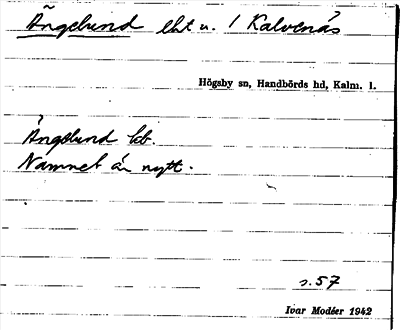 Ängelund lht u. 1 Kalvenäs
Högsby sn, Handbörds hd, Kalm. l.
Ängelund kb.
Namnet är nytt.
s. 57
Ivar Modéer 1942